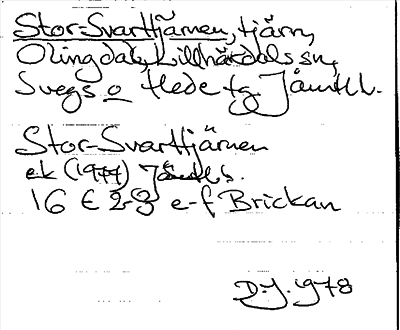 Stor-Svarttjärnen, tjärn,
Olingdal, Lillhärdals sn,
Svegs o Hede tg. Jämtl l.
Stor-Svarttjärnen
ek (1977) Jämtl l.
16 E 2-3 e-f Brickan
D.J. 1978